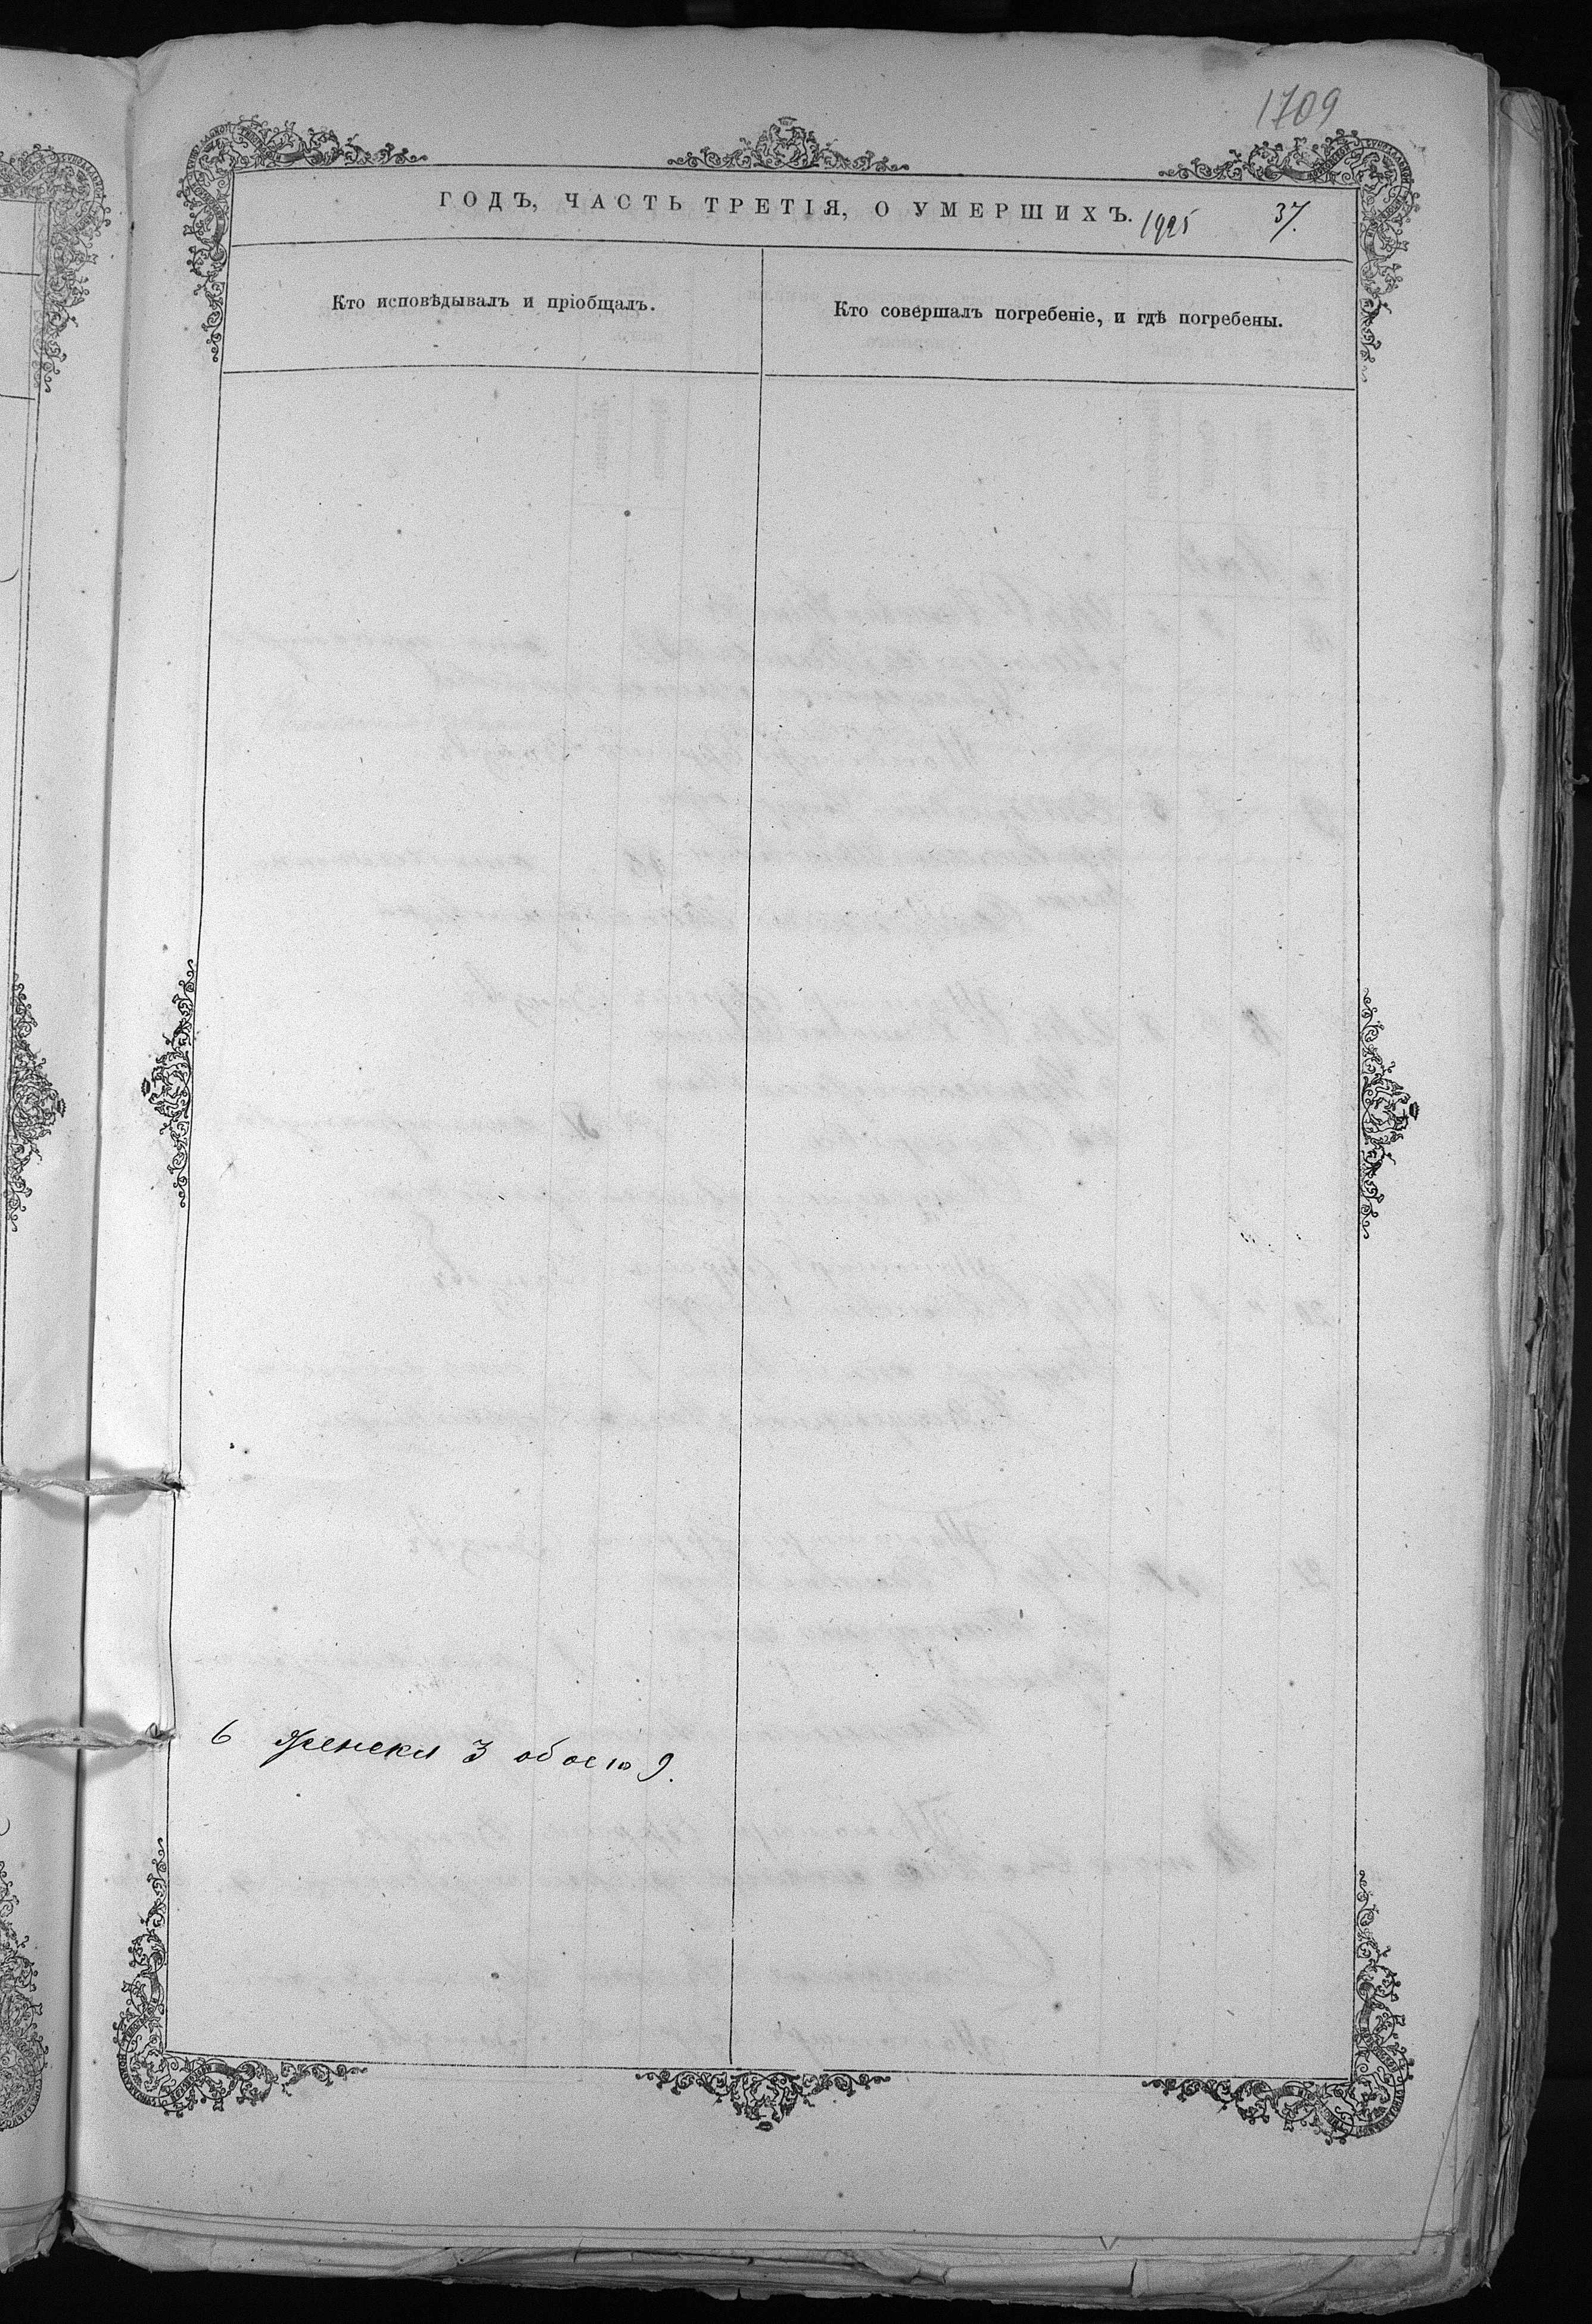 1709
ГОДЪ, ЧАСТЬ ТРЕТІЯ, О УМЕРШИХЪ. 37.
Кто исповѣдывалъ и пріобщалъ.
Кто совершалъ погребеніе, и гдѣ погребены.
6 женска 3 обоею 9.